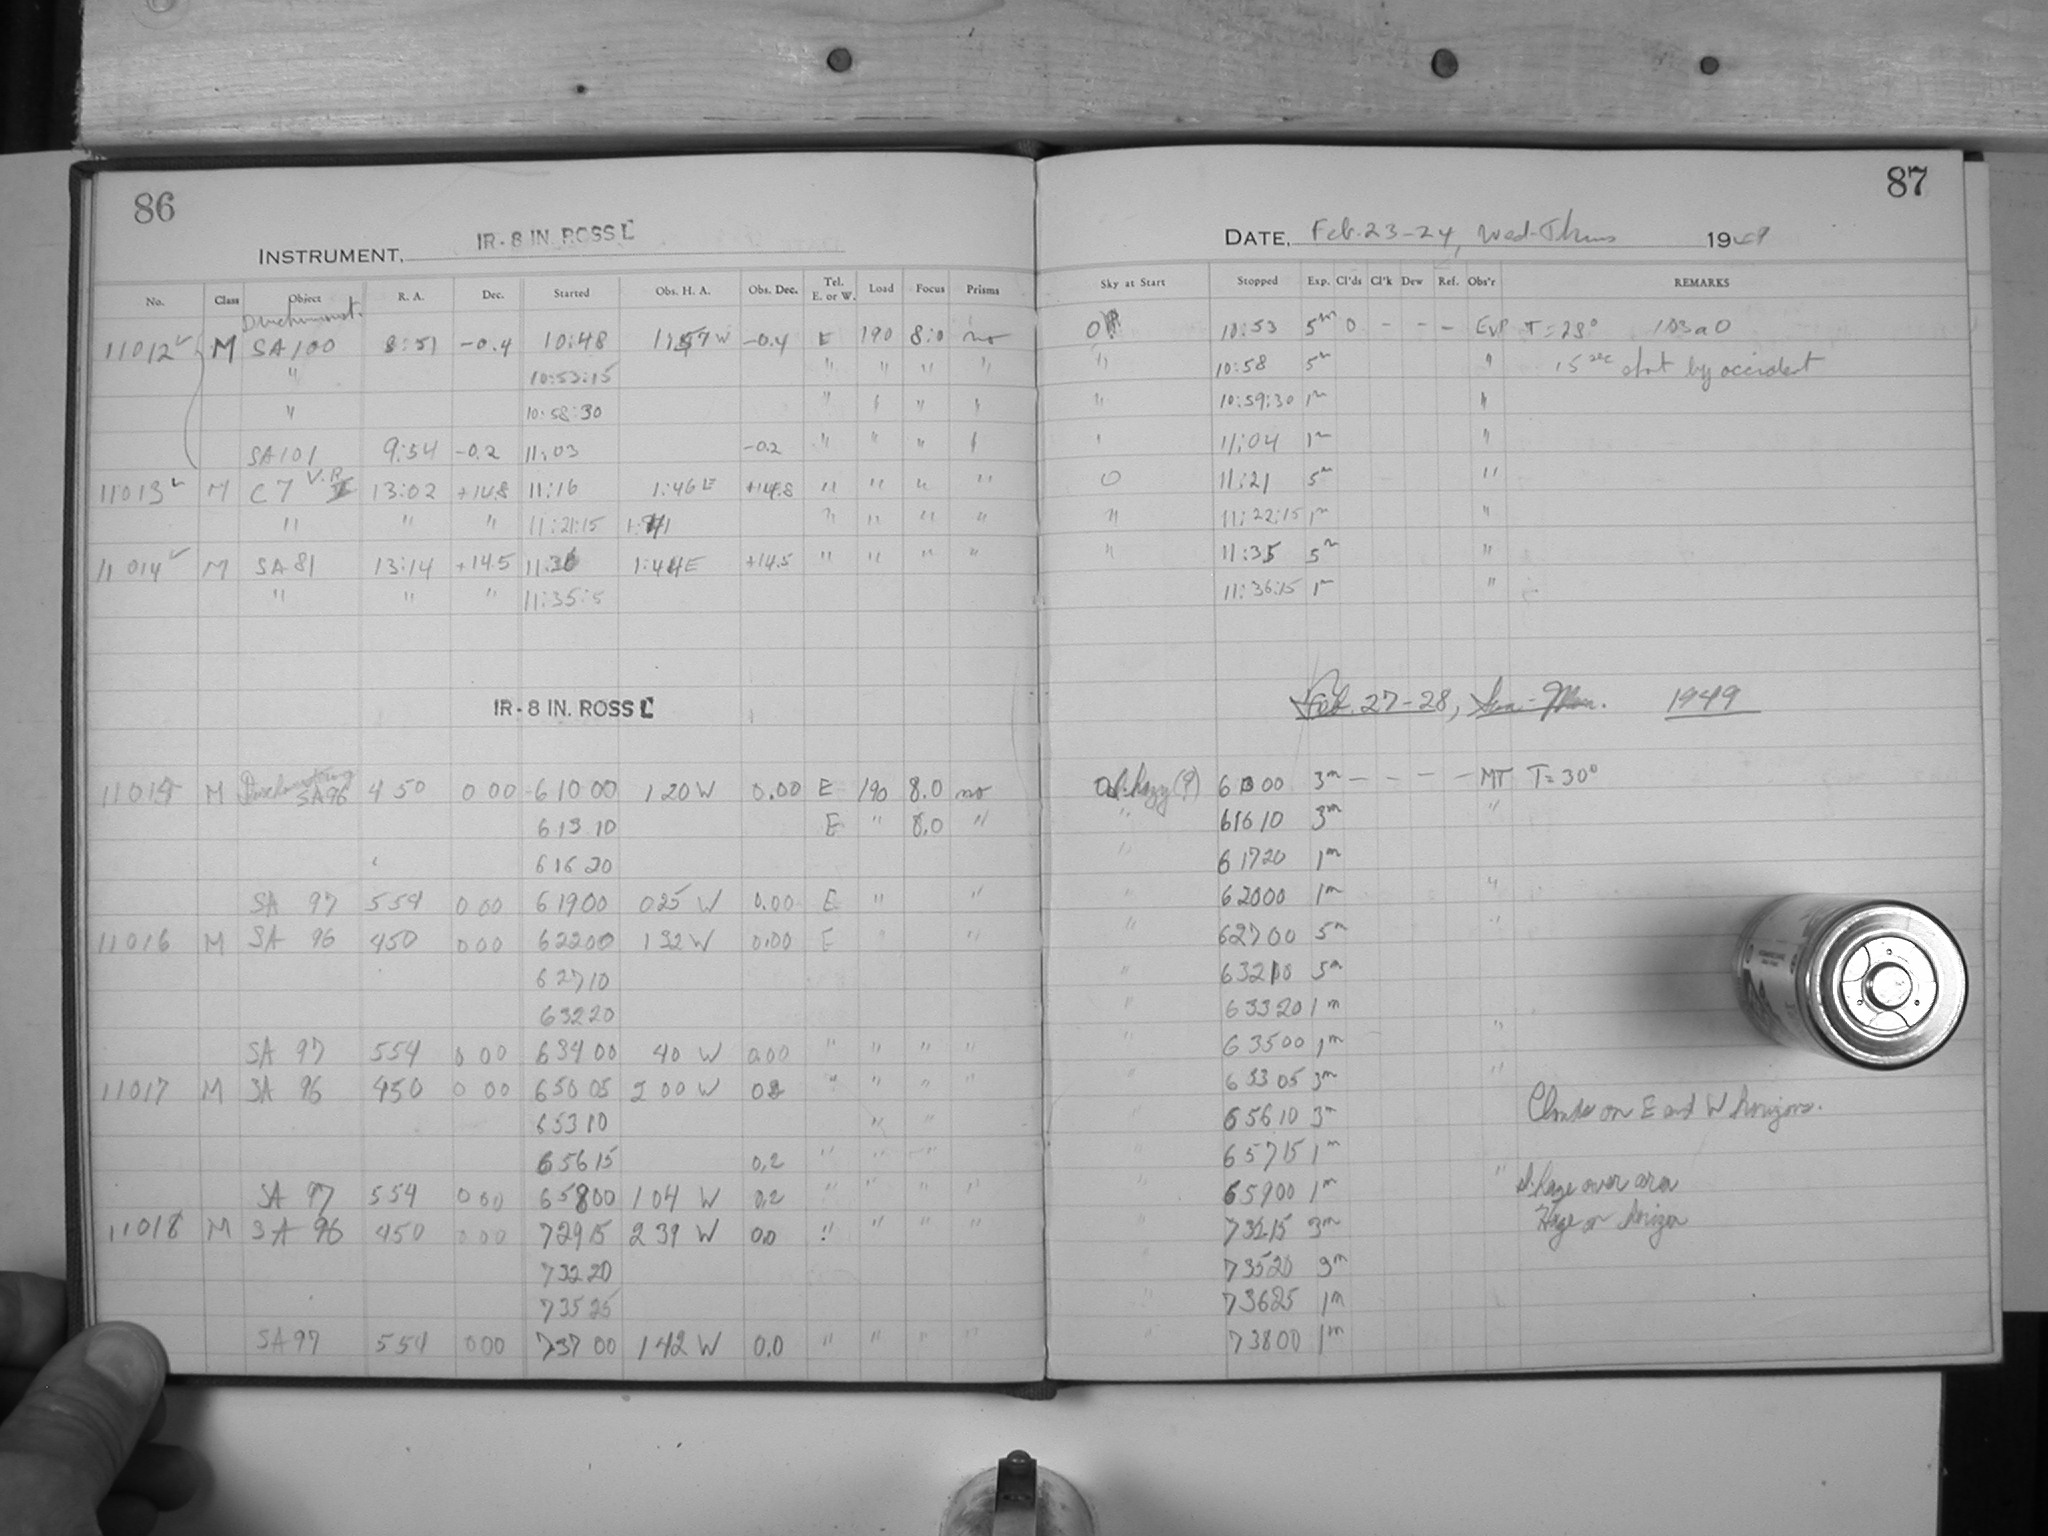 86
INSTRUMENT, IR-8 IN. ROSS
No. Class Object R. A. Dec. Started Obs. H. A. Obs. Dec. Tel. E. or W. Load Focus Prisms
11012 M SA 100 8:51 -0.4 10:48 1:57 W -0.4 E 190 8:0 no
" 10:53:15 " " " "
" 10:58:30 " " "
SA 101 9:54 -0.2 11:03 -0.2 " " "
11013 M C7 13:02 +14.8 11:16 1:46 E +14.8 " " " "
" " " 11:21:15 " " " "
11014 M SA 81 13:14 +14.5 E +14.5 " " " "
" " " 11:35:
IR-8 IN. ROSS
M SA 96 4 50 0 00 6 10 00 1 20 W 0.00 E 190 8.0 no
6 13 10 E " 8.0 "
6 16 20
SA 97 5 54 0 00 6 19 00 0 25 W 0.00 E " "
11016 M SA 96 4 50 0 00 6 22 00 1 32 W 0.00 E " "
6 27 10
6 32 20
SA 97 5 54 0 00 6 34 00 40 W 0.00 " " " "
11017 M SA 96 4 50 0 00 6 50 05 2 00 W " " " "
6 53 10 " "
6 56 15 0.2 " " "
SA 97 5 54 0 00 6 58 00 1 04 W 0.2 " " " "
11018 M SA 96 4 50 0 00 7 29 15 2 39 W 0.0 " " " "
7 32 20
7 35 25
SA 97 5 54 0 00 7 37 00 1 42 W 0.0 " " " "
87
DATE, Feb. 23-24, Wed-Thurs 1949
Sky at Start Stopped Exp. Cl'ds Cl'k Dew Ref. Obs'r REMARKS
10:53 5m 0 - - - T = 28° 103aO
" 10:58 5m " 15 sec short by accident
" 10:59:30 1m "
11:04 1m "
0 11:21 5m "
" 11:22:15 1m "
" 11:35 5m "
11:36:15 1m "
Feb. 27-28, Sun-Mon. 1949
hazy (?) 6 13 00 3m - - - - MT T=30°
" 6 16 10 3m "
" 6 17 20 1m
" 6 20 00 1m "
" 6 27 00 5m "
" 6 32 10 5m
" 6 33 20 1m
" 6 35 00 1m "
" 6 53 05 3m "
6 56 10 3m Clouds on E and W horizons.
6 57 15 1m
6 59 00 1m " sl. haze over area
7 32 15 3m Haze on horizon
7 35 20 3m
" 7 36 25 1m
" 7 38 00 1m